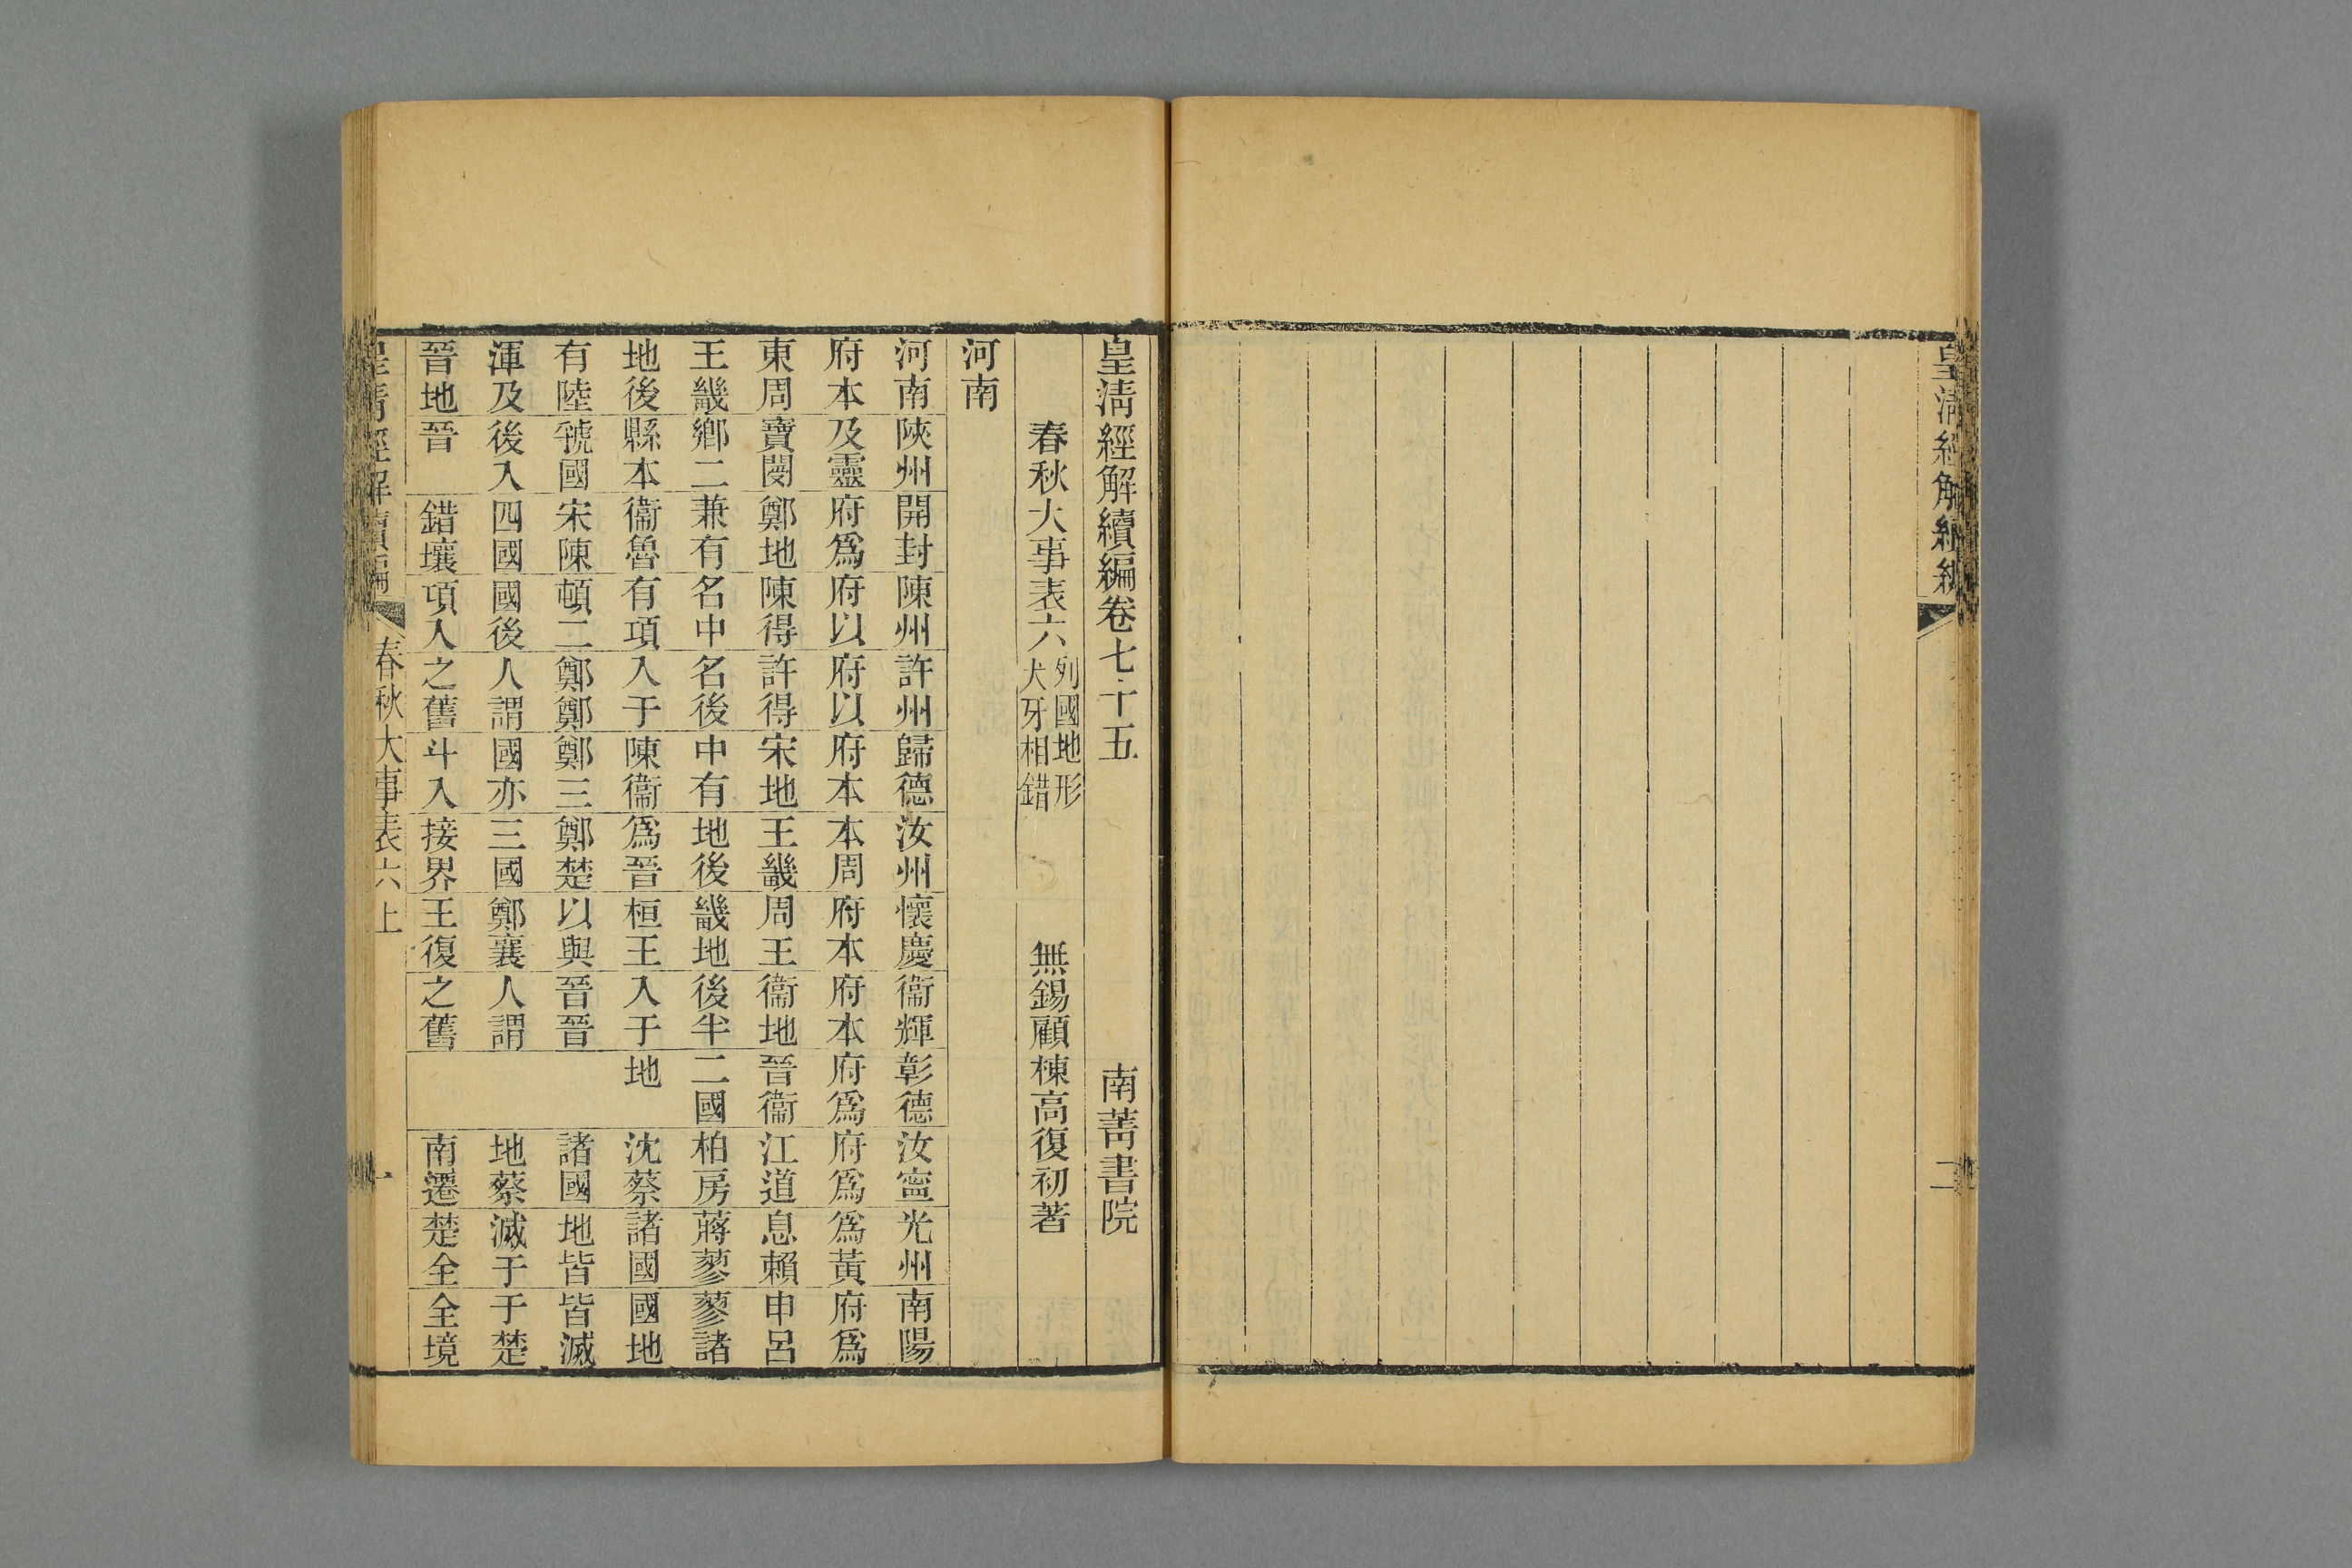 皇清經解續編
二
皇清經解續編卷七十五 南菁書院
春秋大事表六 列國地形犬牙相錯 無錫顧棟高復初著
河南
河南 陝州 開封 陳州 許州 歸德 汝州 懷慶 衞輝 彰德 汝甯 光州 南陽
府本 及靈 府爲 府以 府以 府本 本周 府本 府本 府爲 府爲 爲黃 府爲
東周 寶閿 鄭地 陳得 許得 宋地 王畿 周王 衞地 晉衞 江道 息賴 申呂
王畿 鄉二 兼有 名中 名後 中有 地後 畿地 後半 二國 柏房 蔣蓼 蓼諸
地後 縣本 衞魯 有項 入于 陳衞 爲晉 桓王 入于 地 沈蔡 諸國 國地
有陸 虢國 宋陳 頓二 鄭鄭 鄭三 鄭楚 以與 晉晉 諸國 地皆 皆滅
渾及 後入 四國 國後 人謂 國亦 三國 鄭襄 人謂 地蔡 滅于 于楚
晉地 晉 錯壤 項入 之舊 斗入 接界 王復 之舊 南遷 楚全 全境
皇清經解續編 春秋大事表六上 一